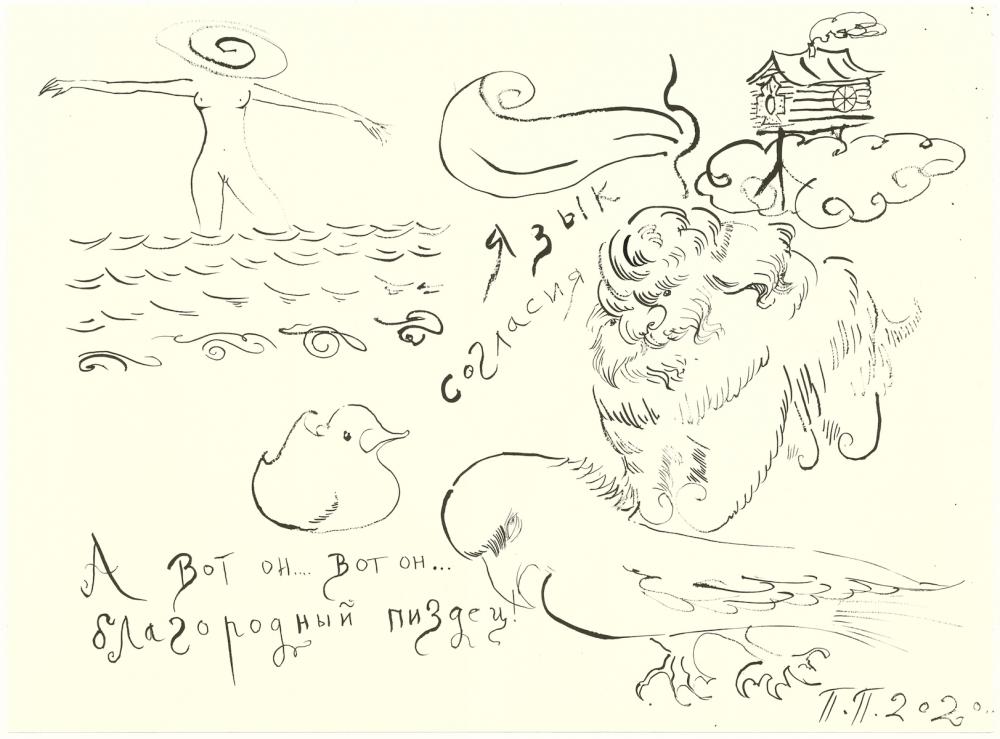 Язык
согласия
А вот он.... вот он...
благородный пиздец!
П.П.2020..